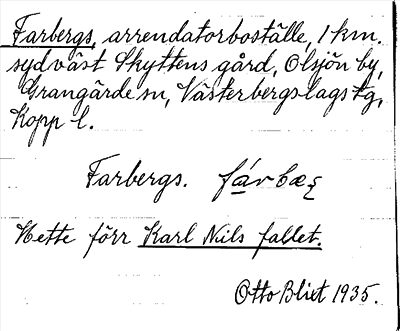 Farbergs, arrendatorboställe, 1 km.
sydväst Skyttens gård, Olsjön by,
Grangärde sn, Västerbergslags tg,
Kopp l.
Farbergs. fárbæʂ
Hette förr Karl Nils fallet.
Otto Blixt 1935.